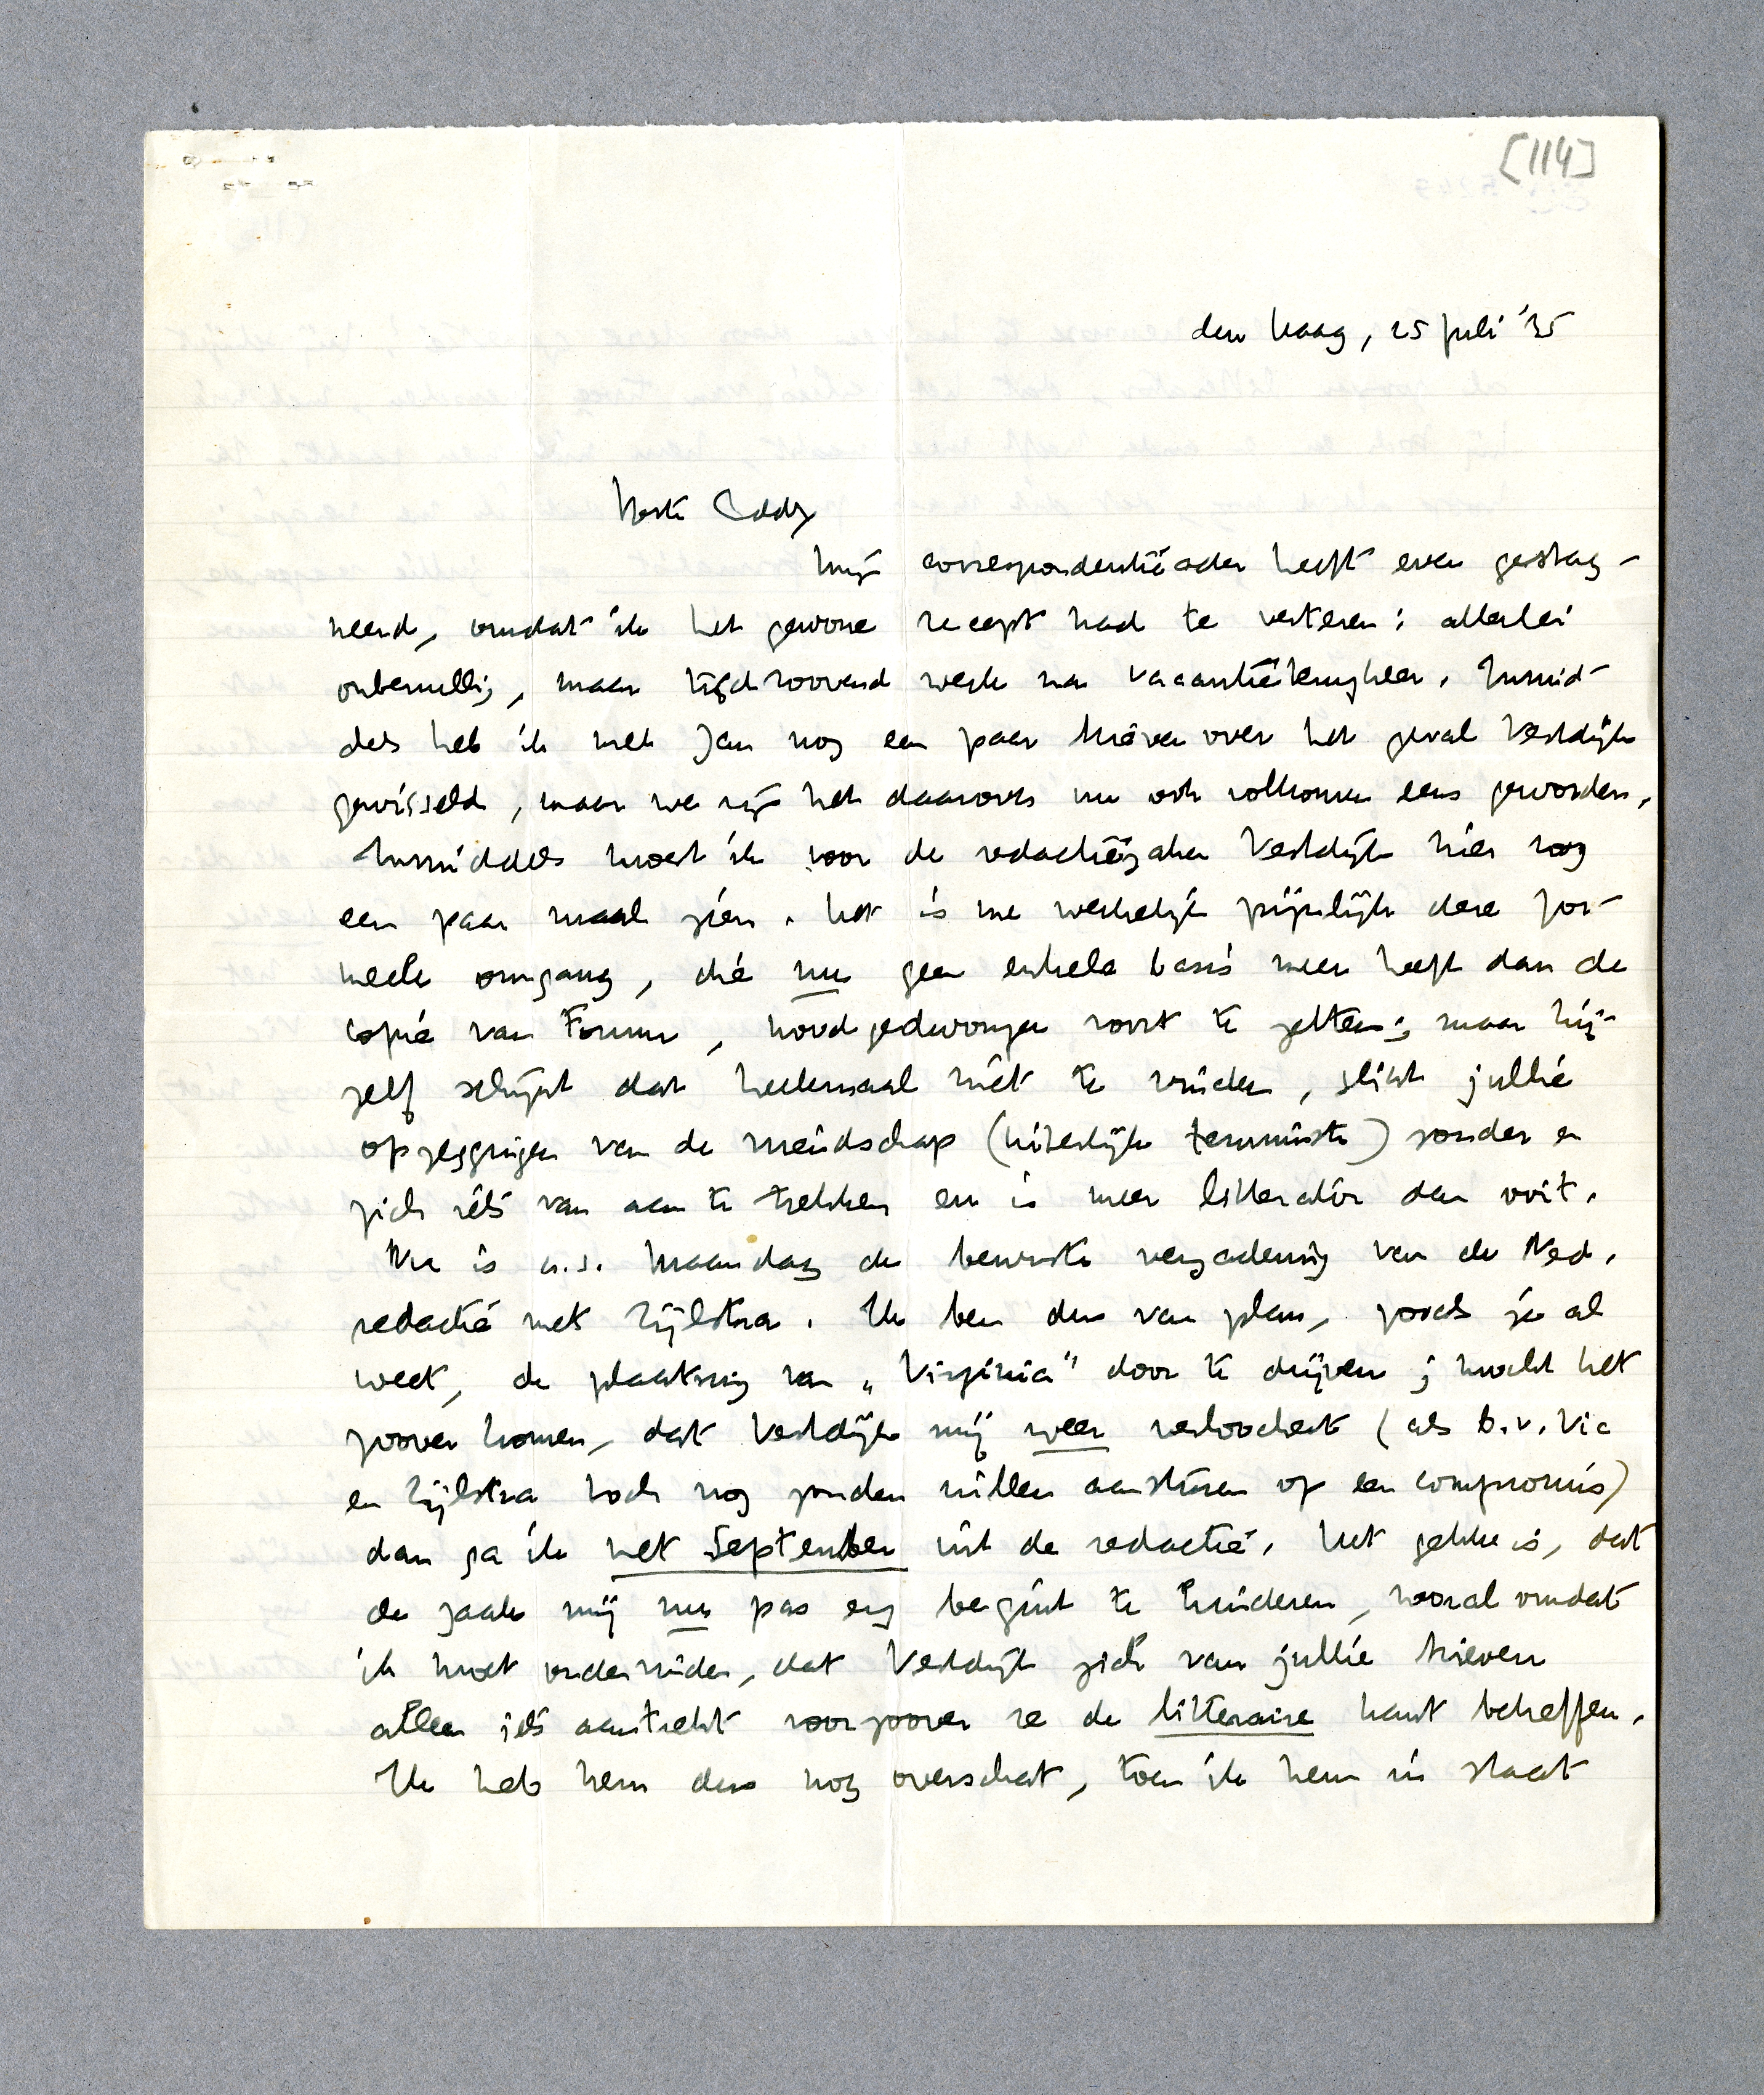 [114]
den Haag, 25 Juli '35
Beste Eddy
Mijn correspondentieader heeft even gestag-
neerd, omdat ik het gewone recept had te verteren: allerlei
onbenullig, maar tijdroovend werk na vacantieterugkeer. Inmid-
dels heb ik met Jan nog een paar brieven over het geval Vestdijk
gewisseld, maar we zijn het daarover nu ook volkomen eens geworden.
Inmiddels moest ik voor de redactiezaken Vestdijk hier nog
een paar maal zien. Het is me werkelijk pijnlijk deze for-
meele omgang, die nu geen enkele basis meer heeft dan de
copie van Forum, noodgedwongen voort te zetten; maar hij-
zelf schijnt dat heelemaal niet te vinden, slikt jullie
opzeggingen van de vriendschap (uiterlijk tenminste) zonder er
zich iets van aan te trekken en is meer litterator dan ooit.
Nu is a.s. Maandag de bewuste vergadering van de Ned.
redactie met Zijlstra. Ik ben dus van plan, zooals je al
weet, de plaatsing van „Virginia" door te drijven; mocht het
zoover komen, dat Vestdijk mij weer verloochent (als b.v. Vic
en Zijlstra toch nog zouden willen aansturen op een compromis)
dan ga ik met September uit de redactie. Het gekke is, dat
de zaak mij nu pas erg begint te hinderen, vooral omdat
ik moet ondervinden, dat Vestdijk zich van jullie brieven
alleen iets aantrekt voorzoover ze de litteraire kant betreffen.
Ik heb hem dus nog overschat, toen ik hem in staat